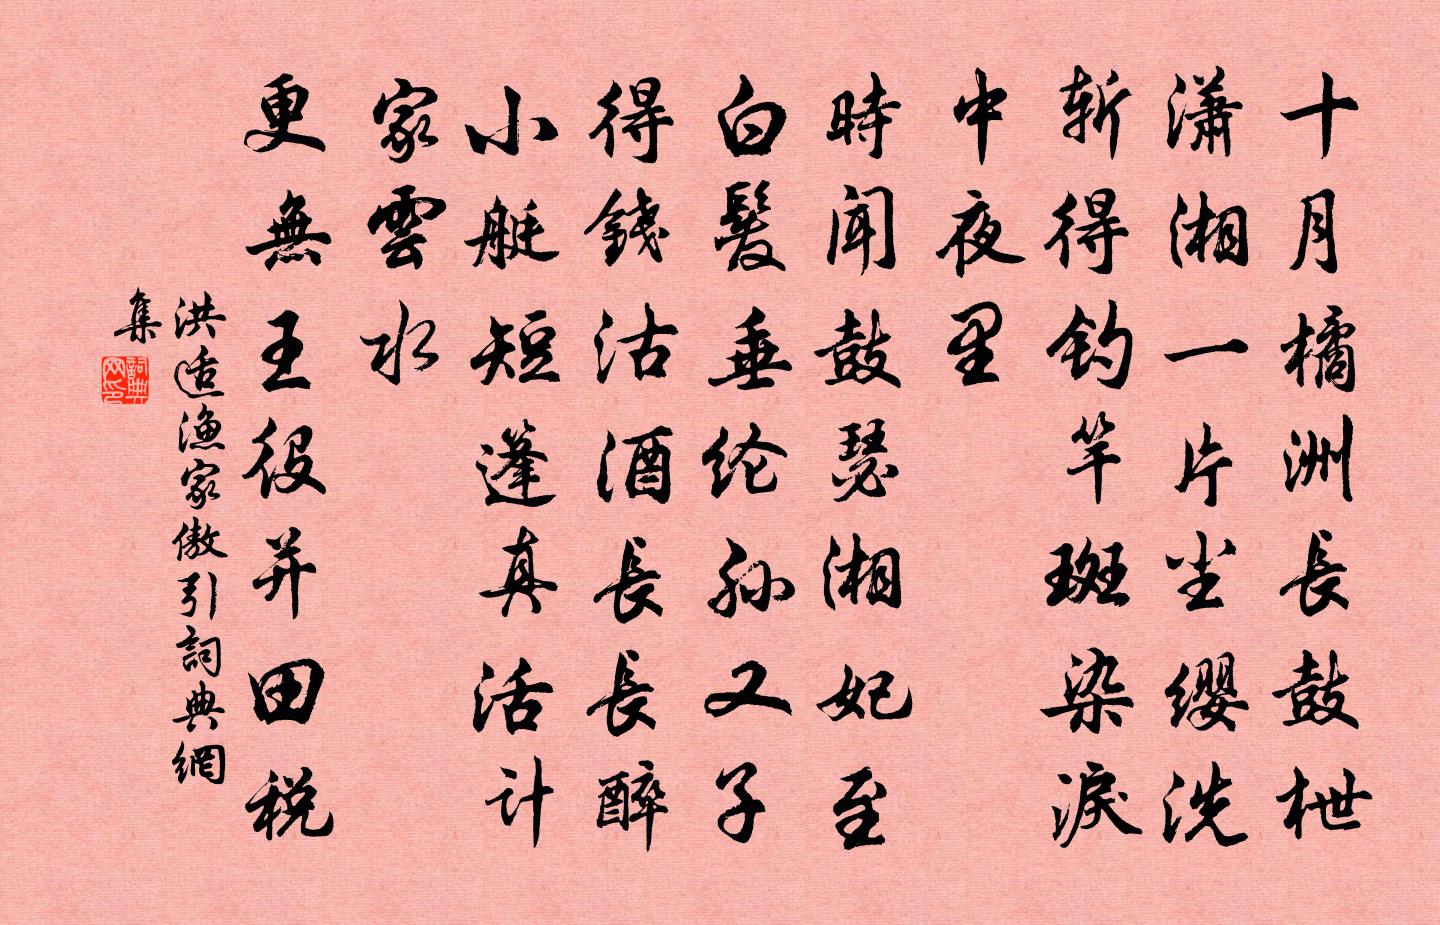 十月橘洲長鼓枻
潇湘一片尘缨洗
斩得钓竿斑染淚
中夜里
時闻鼓瑟湘妃至
白髮垂纶孙又子
得錢沽酒長長醉
小艇短蓬真活计
家雲水
更無王役并田税
洪适渔家傲引詞典網
集
詞典网印